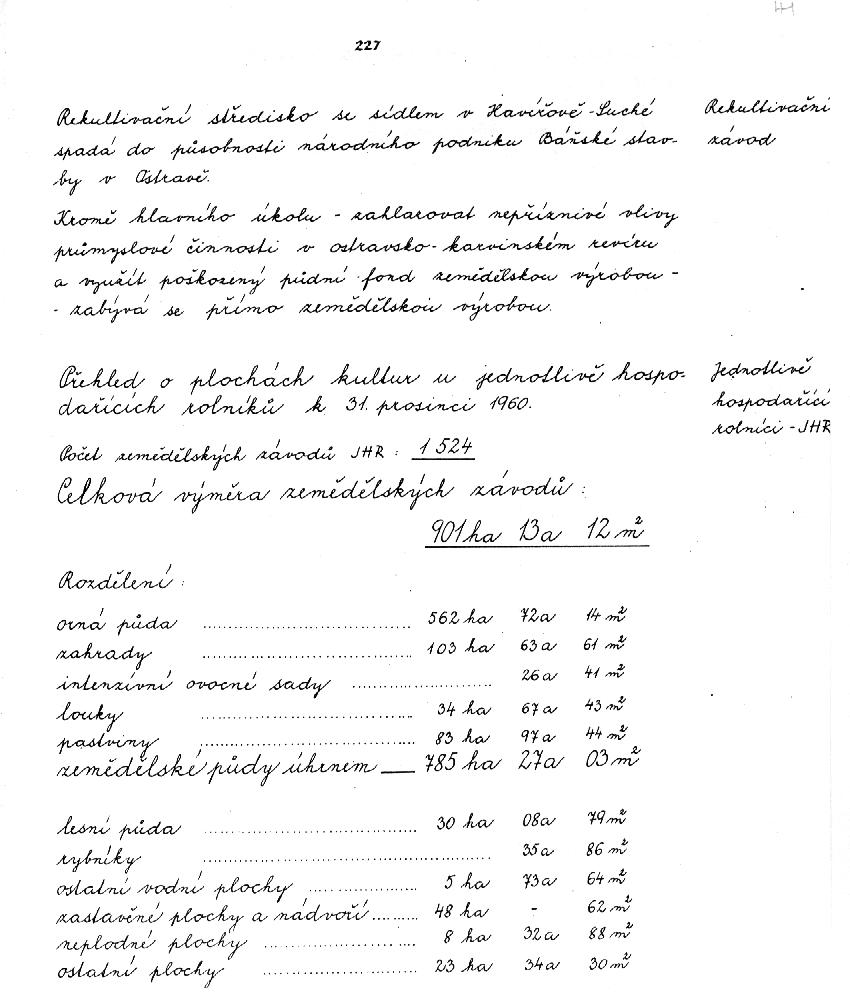 227
Rekultivační středisko se sídlem v Havířově-Suché
spadá do působnosti národního podniku Báňské stav-
by v Ostravě.
Rekultivační
závod
Kromě hlavního úkolu - zahlazovat nepříznivé vlivy
průmyslové činnosti v ostravsko-karvinském revíru
a využít poškozený půdní fond zemědělskou výrobou -
- zabývá se přímo zemědělskou výrobou.
Přehled o plochách kultur u jednotlivě hospo-
dařících rolníků k 31. prosinci 1960.
Jednotlivě
hospodařící
rolníci - JHR
Počet zemědělských závodů JHR : 1 524
Celková výměra zemědělských závodů :
901 ha 13 a 12 m²
Rozdělení :
orná půda ........ 562 ha 72 a 14 m²
zahrady ........ 103 ha 63 a 61 m²
intenzívní ovocné sady ........ 26 a 41 m²
louky ........ 34 ha 67 a 43 m²
pastviny ........ 83 ha 97 a 44 m²
zemědělské půdy úhrnem __ 785 ha 27 a 03 m²
lesní půda ........ 30 ha 08 a 79 m²
rybníky ........ 35 a 86 m²
ostatní vodní plochy ........ 5 ha 73 a 64 m²
zastavěné plochy a nádvoří ........ 48 ha - 62 m²
neplodné plochy ........ 8 ha 32 a 88 m²
ostatní plochy ........ 23 ha 34 a 30 m²